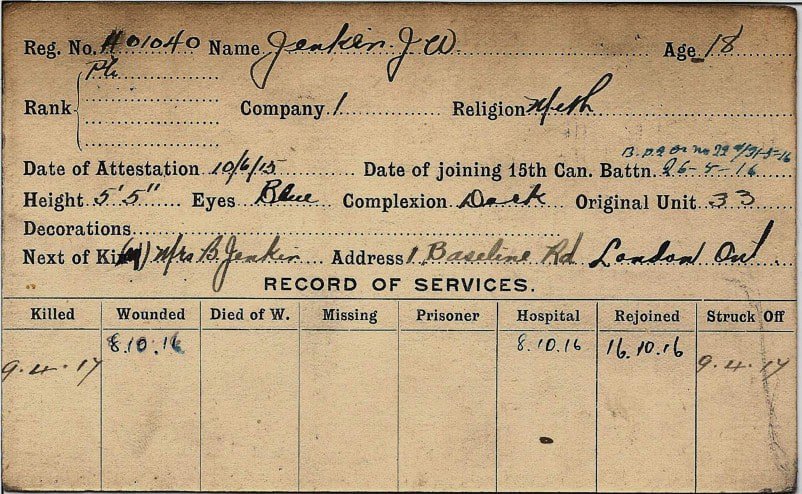 Reg. No. 401040 Name Jenkin J W Age 18
Pte
Rank Company 1 Religion Meth
B.p.2 Or no 22 d/31-5-16
Date of Attestation 10/6/15 Date of joining 15th Can. Battn. 26-5-16
Height 5'5" Eyes Blue Complexion Dark Original Unit 33
Decorations
Next of Kin (M) Mrs B. Jenkin Address 1 Baseline Rd London Ont.
RECORD OF SERVICES.
Killed Wounded Died of W. Missing Prisoner Hospital Rejoined Struck Off
9.4.17 8.10.16 8.10.16 16.10.16 9.4.17